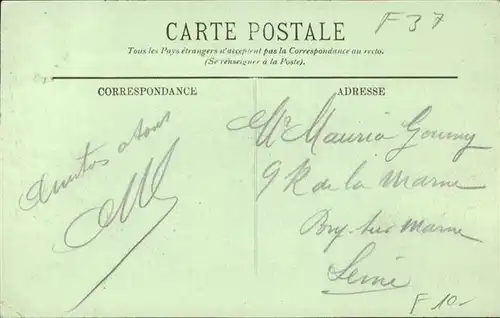 CARTE POSTALE
F37
Tous les Pays étrangers n'acceptent pas la Correspondance au recto.
(Se renseigner à la Poste).
CORRESPONDANCE
ADRESSE
a tous
Mr Maurice
9 R de la Marne
Bry sur Marne
Seine
F 10-